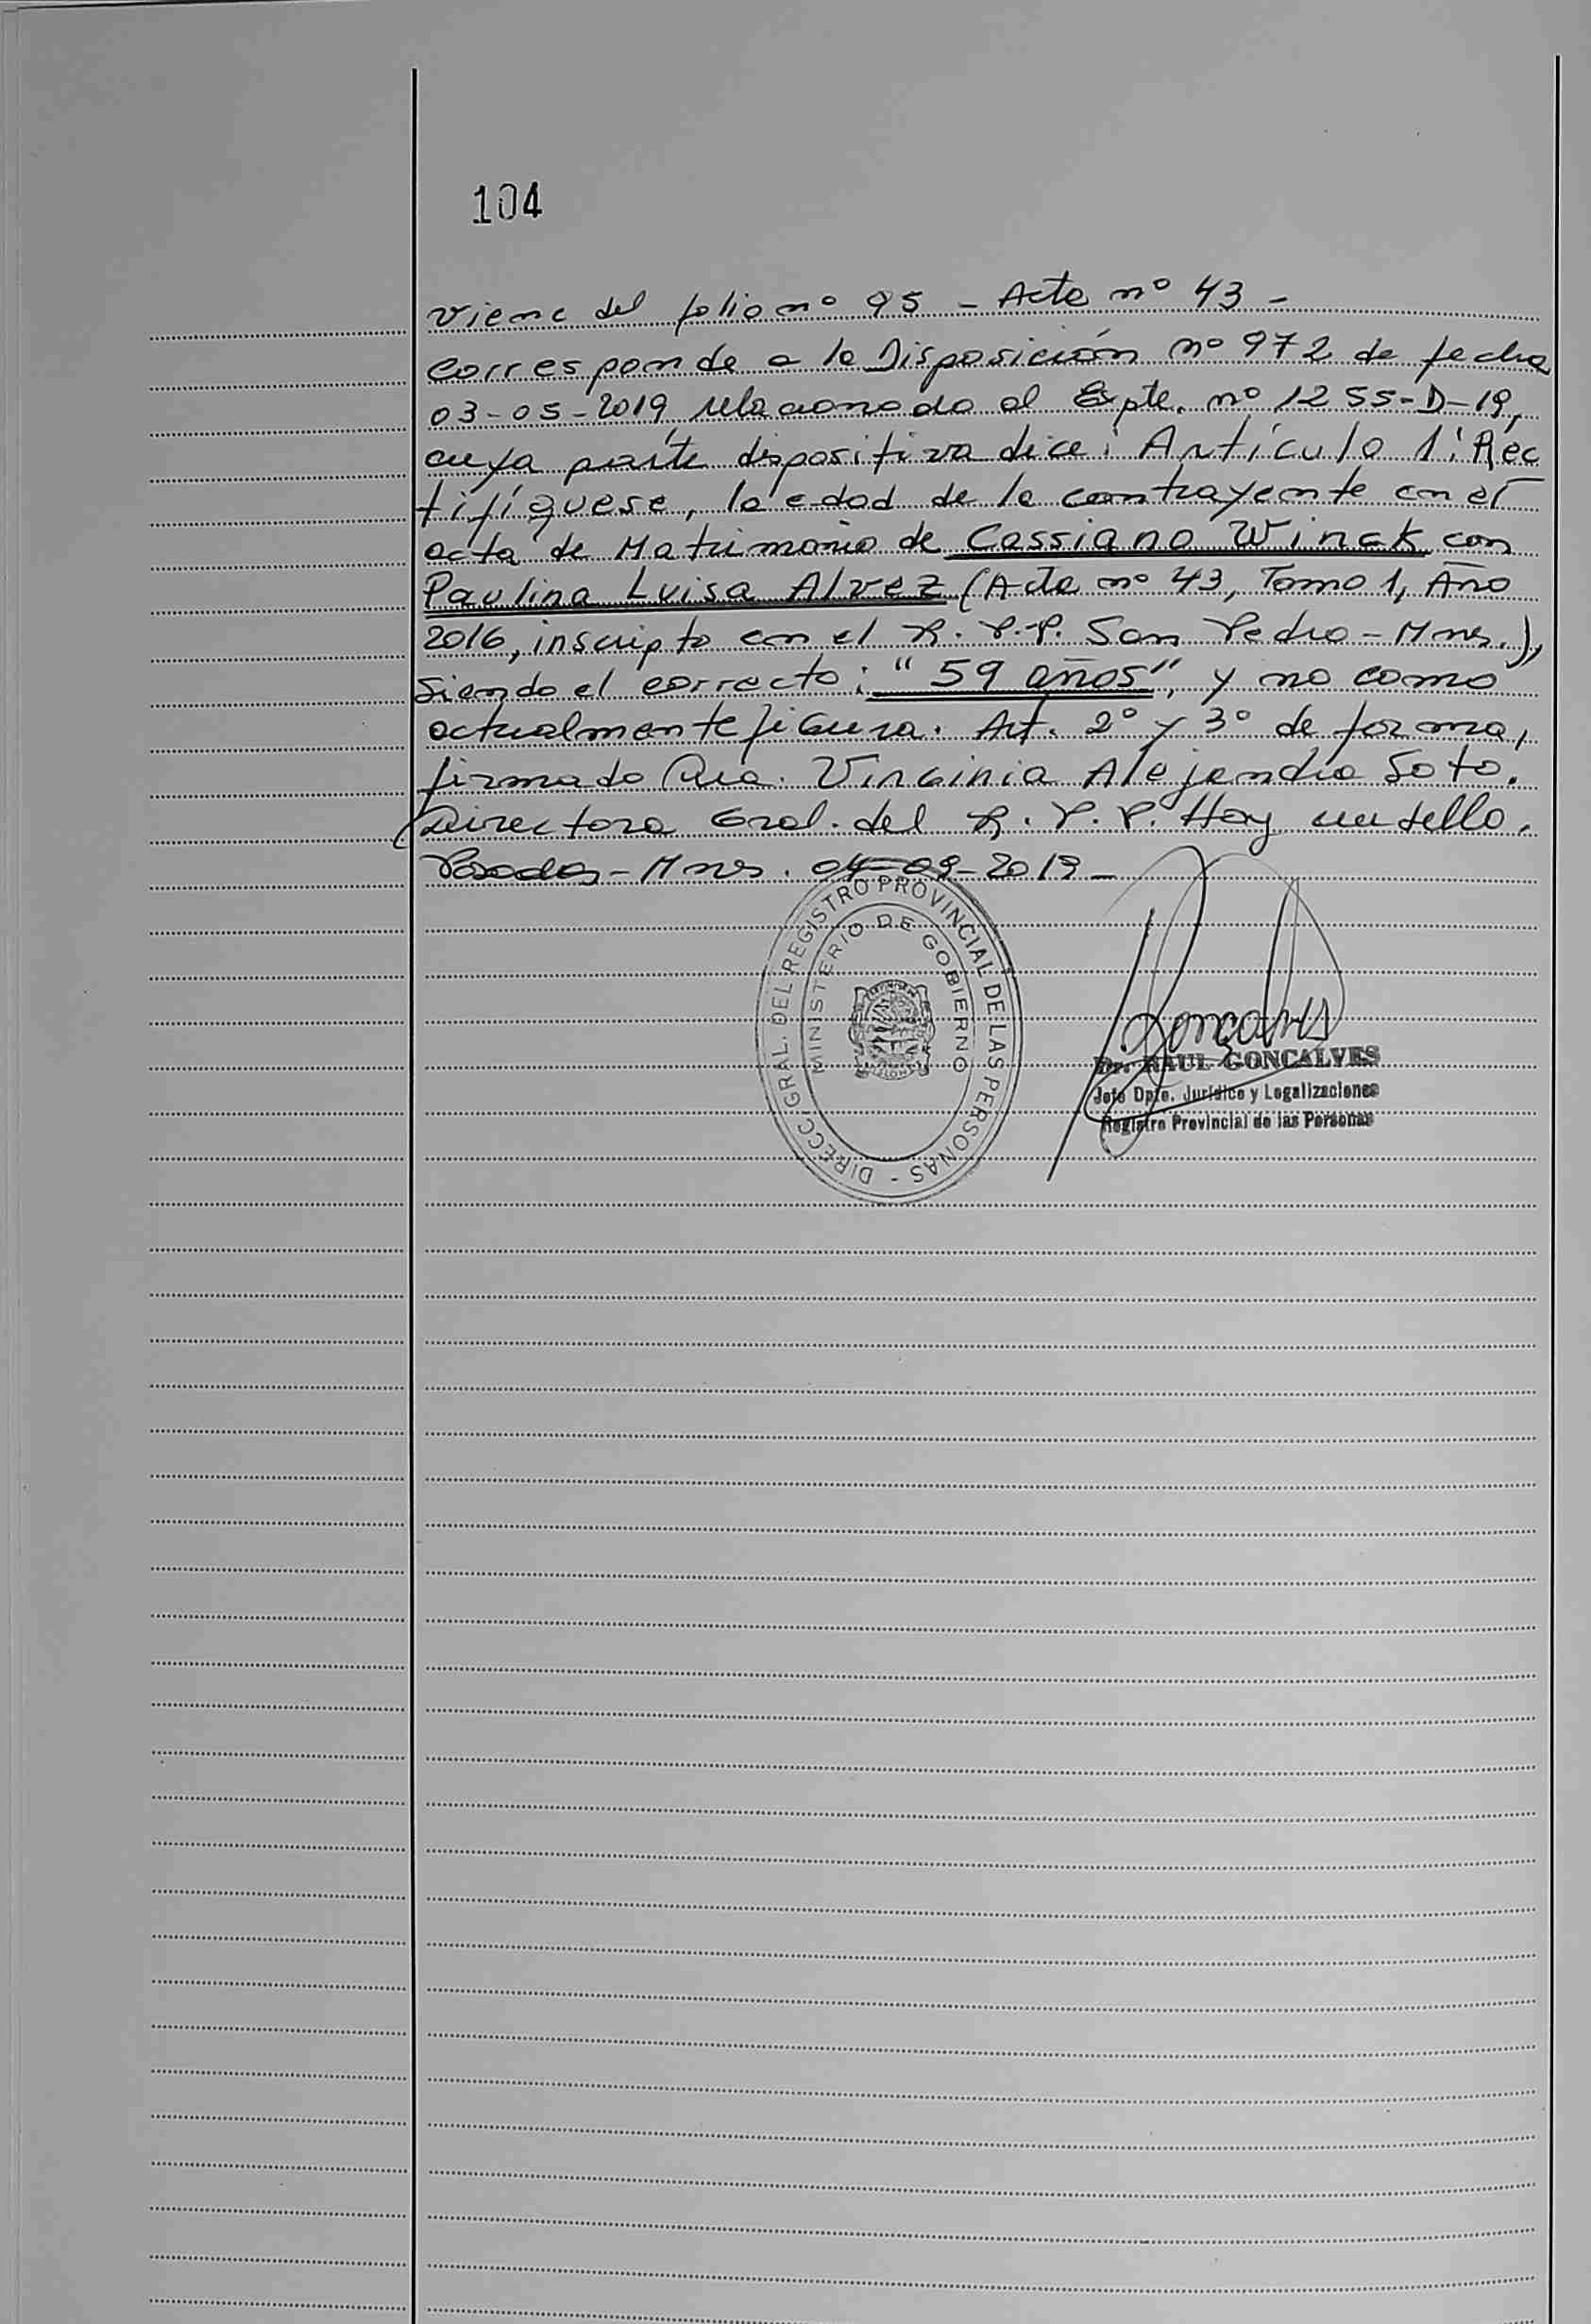 104
Viene del folio nº 95 - Acta nº 43 -
Corresponde a la Disposición nº 972 de fecha
03-05-2019 relacionado al Expte. nº 1255-D-19,
cuya parte dispositiva dice: Artículo 1: Rec
tifíquese, la edad de la contrayente en el
acta de Matrimonio de Cassiano Winck con
Paulina Luisa Alvez (Acta nº 43, Tomo 1, Año
2016, inscripto en el R. P. P. San Pedro - Mnes.),
siendo el correcto: "59 años", y no como
actualmente figura. Art. 2º y 3º de forma,
firmado Virginia Alejandra Soto.
Directora Gral. del R. P. P. Hay un sello.
Posadas - Mnes. 04-09-2019 -
DIRECC. GRAL. DEL REGISTRO PROVINCIAL DE LAS PERSONAS -
MINISTERIO DE GOBIERNO
Goncalves
Dr. RAUL GONCALVES
Jefe Dpto. Jurídico y Legalizaciones
Registro Provincial de las Personas